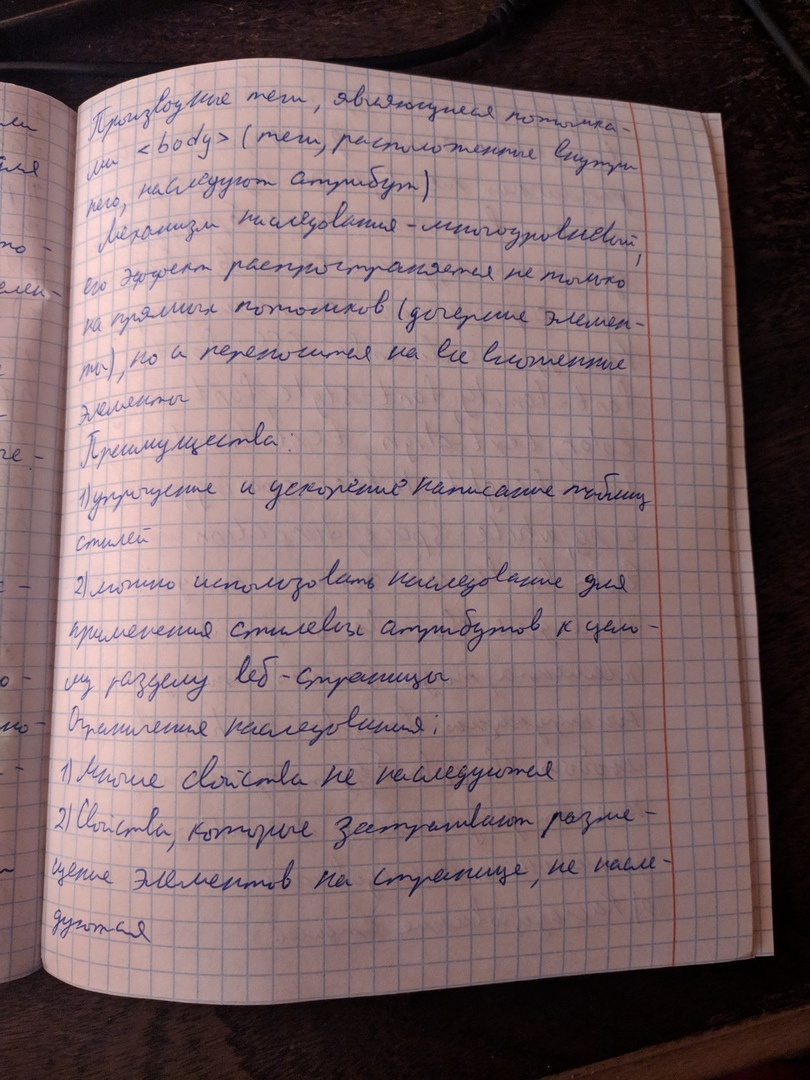 ми
для
то -
елен-
че -
с -
о -
но -
Производные теги, являющиеся потомка-
ми <body> (теги, расположенные внутри
него, наследуют атрибут)
Механизм наследования - многоуровневый,
его эффект распространяется не только
на прямых потомков (дочерние элемен-
ты), но и переносится на все вложенные
элементы
Преимущества:
1) упрощение и ускорение написание таблиц
стилей
2) можно использовать наследование для
применения стилевых атрибутов к цело-
му разделу веб-страницы
Ограничения наследования:
1) Многие свойства не наследуются
2) Свойства, которые затрагивают разме-
щение элементов на странице, не насле-
дуются